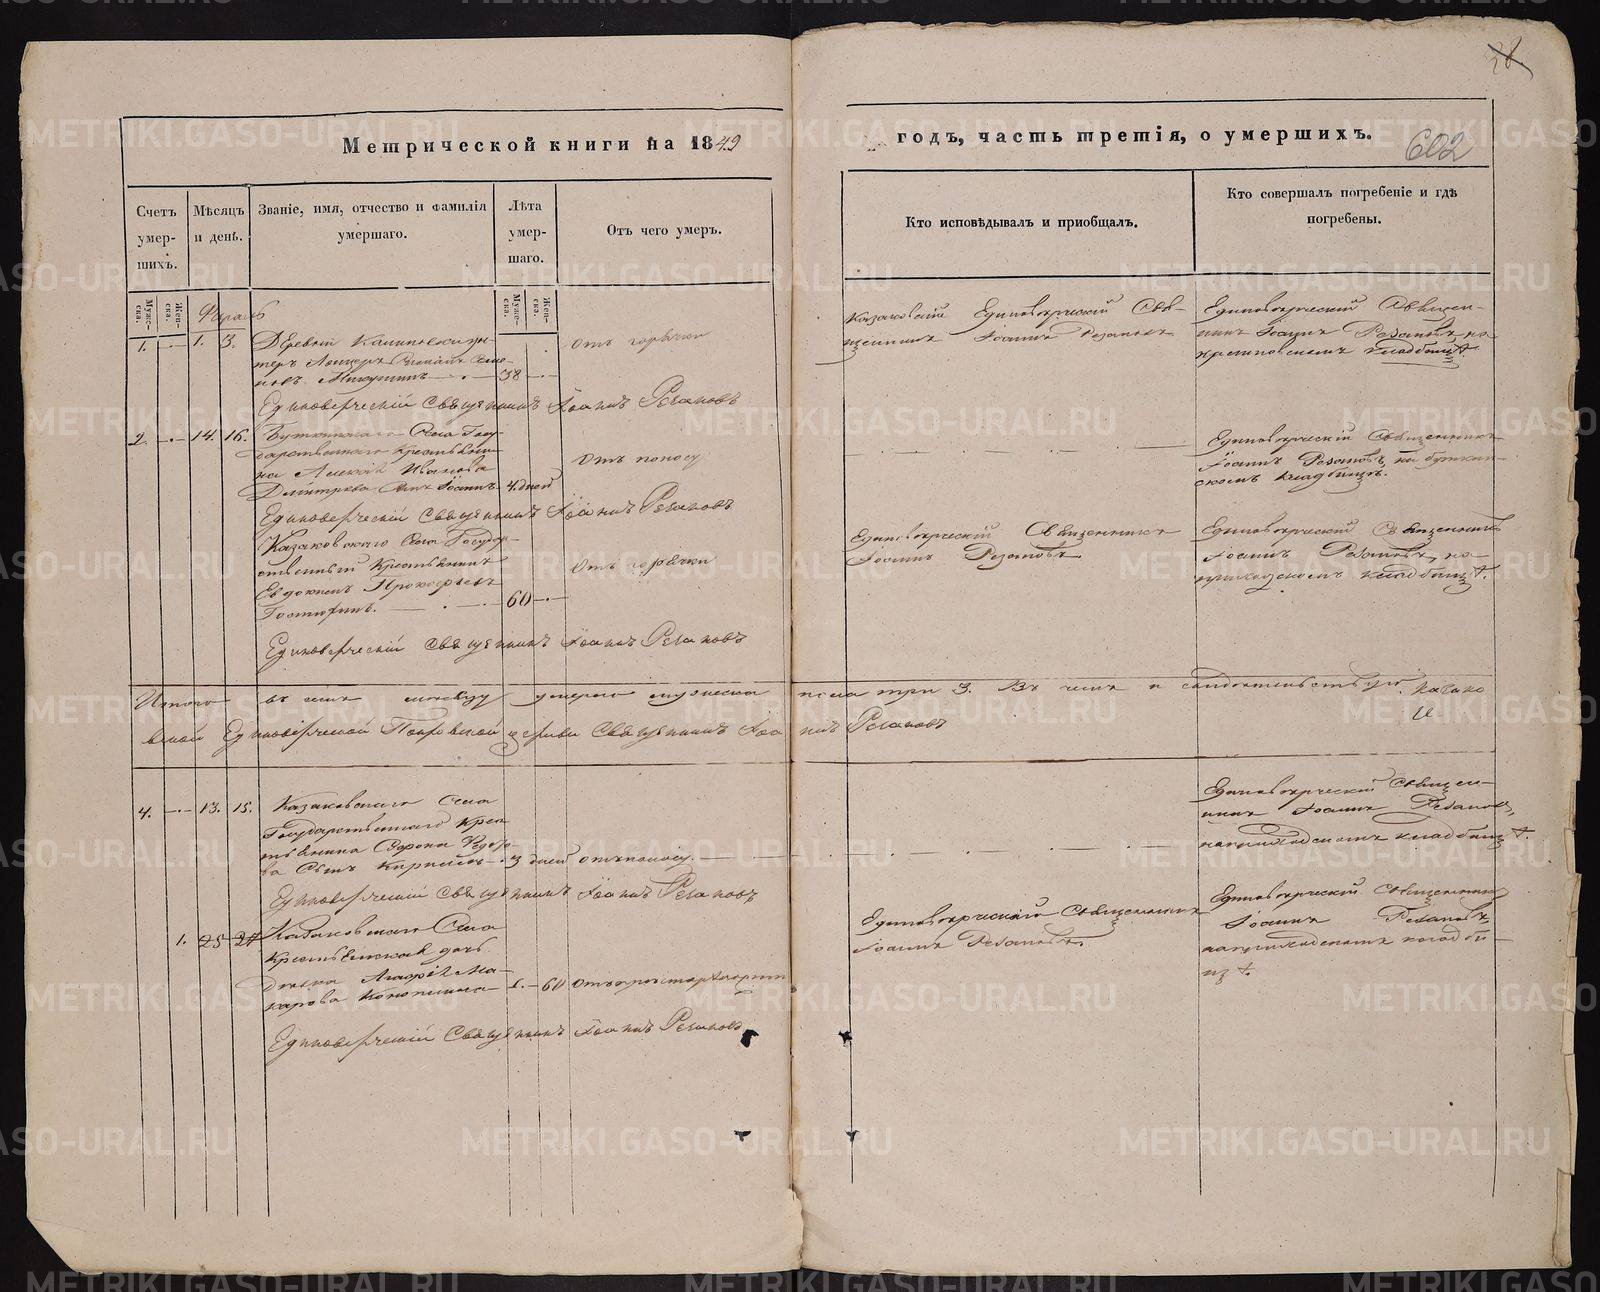 28.
Метрической книги на 1849
годъ, часть третія, о умершихъ.
602
Счетъ умер-шихъ.
Мѣсяцъ и день.
Званіе, имя, отчество и фамилія умершаго.
Лѣта умер-шаго.
Отъ чего умеръ.
Кто исповѣдывалъ и приобщалъ.
Кто совершалъ погребеніе и гдѣ погребены.
Муже-ска.
Жен-ска.
Муже-ска.
Жен-ска.
1. 1. 3.
Деревни
38
отъ горячки
Казаковскій Единоверческій Свя-
щенникъ Іоаннъ Резановъ
Единоверческій Священ-
никъ Іоаннъ Резановъ, на
кладбищѣ.
Единоверческій Священникъ Іоаннъ Резановъ
2. 14. 16.
Буткинскаго Села Госу-
дарственнаго Крестьяни-
на Алексѣя Иванова
Димитрева Сынъ Іоаннъ 4 дней
отъ поносу
Единоверческій Священникъ
Іоаннъ Резановъ, на буткин-
скомъ кладбищѣ.
Единоверческій Священникъ Іоаннъ Резановъ
Казаковскаго Села Государ-
ственный Крестьянинъ
Евдокимъ Прокопьевъ
60
отъ горячки
Единоверческій Священникъ
Іоаннъ Резановъ
Единоверческій Священникъ
Іоаннъ Резановъ, на
приходскомъ кладбищѣ.
Единоверческій Священникъ Іоаннъ Резановъ
Итого въ семъ мѣсяцѣ умерло мужеска пола три 3. Въ чемъ и свидѣтельствую казако
вской Единоверческой Покровской церкви Священникъ Іоаннъ Резановъ
4. 13. 15.
Казаковскаго Села
Государственнаго Крес
тьянина Софрона Федоро
ва Сынъ Кириллъ 3 дней отъ поносу.
Единоверческій Священ-
никъ Іоаннъ Резановъ,
на приходскомъ кладбищѣ.
Единоверческій Священникъ Іоаннъ Резановъ
1. 25 27
Казаковскаго Села
Крестьянская дочь
Ма-
карова
60
Единоверческій Священникъ
Іоаннъ Резановъ.
Единоверческій Священникъ
Іоаннъ Резановъ,
на приходскомъ кладби-
щѣ.
Единоверческій Священникъ Іоаннъ Резановъ
METRIKI.GASO-URAL.RU